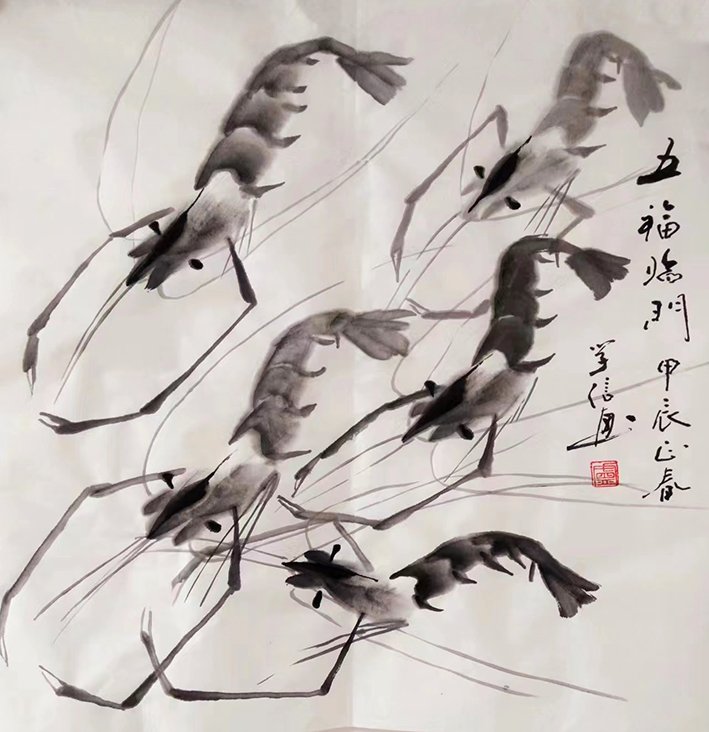 五福临門 甲辰正春
学信画